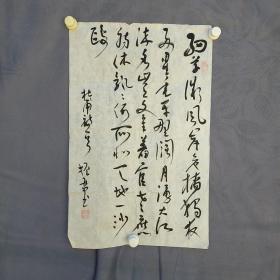 细草微风岸危樯独夜
舟星垂平野阔月涌大江
流名岂文章著官应老
病休飘飘何所似天地一沙
鸥
杜甫诗一首
书